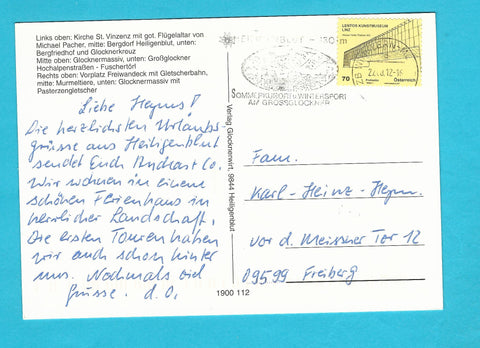 Links oben: Kirche St. Vinzenz mit got. Flügelaltar von
Michael Pacher, mitte: Bergdorf Heiligenblut, unten:
Bergfriedhof und Glocknerkreuz
Mitte oben: Glocknermassiv, unten: Großglockner
Hochalpenstraßen - Fuschertörl
Rechts oben: Vorplatz Freiwandeck mit Gletscherbahn,
mitte: Murmeltiere, unten: Glocknermassiv mit
Pasterzengletscher
Liebe Heyms!
Die herzlichsten Urlaubs-
grüsse aus Heiligenblut
sendet Euch Andrea + Co.
Wir wohnen in einem
schönen Ferienhaus in
herrlicher Landschaft.
Die ersten Touren haben
wir auch schon hinter
uns. Nochmals viel
Grüsse. d. O.
Verlag Glocknerwirt, 9844 Heiligenblut
1900 112
SOMMERKURORT u. WINTERSPORT
AM GROSSGLOCKNER
LENTOS KUNSTMUSEUM
LINZ
70
Österreich
Fam.
Karl-Heinz Heym.
vor d. Meissner Tor 12
09599 Freiberg